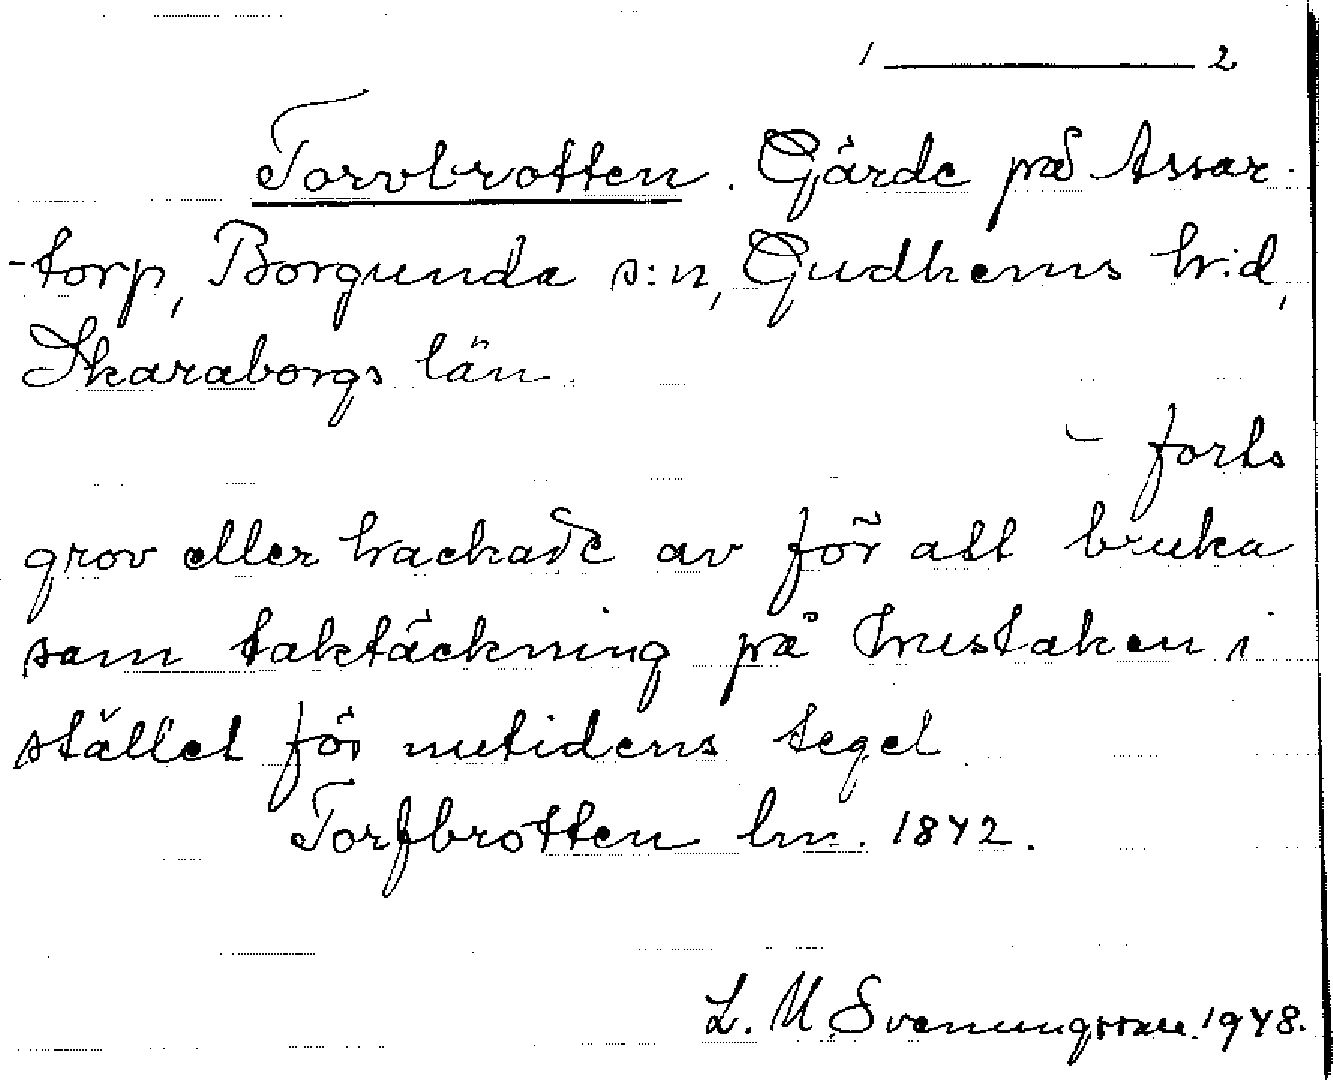 1 ——— 2
Torvbrotten. Gärde på Assar-
-torp, Borgunda s:n, Gudhems h:d,
Skaraborgs län.
– forts
grov eller hackade av för att bruka
som taktäckning på hustaken i
stället för nutidens tegel
Torfbrotten lm. 1842.
L. M. Svenungsson 1948.